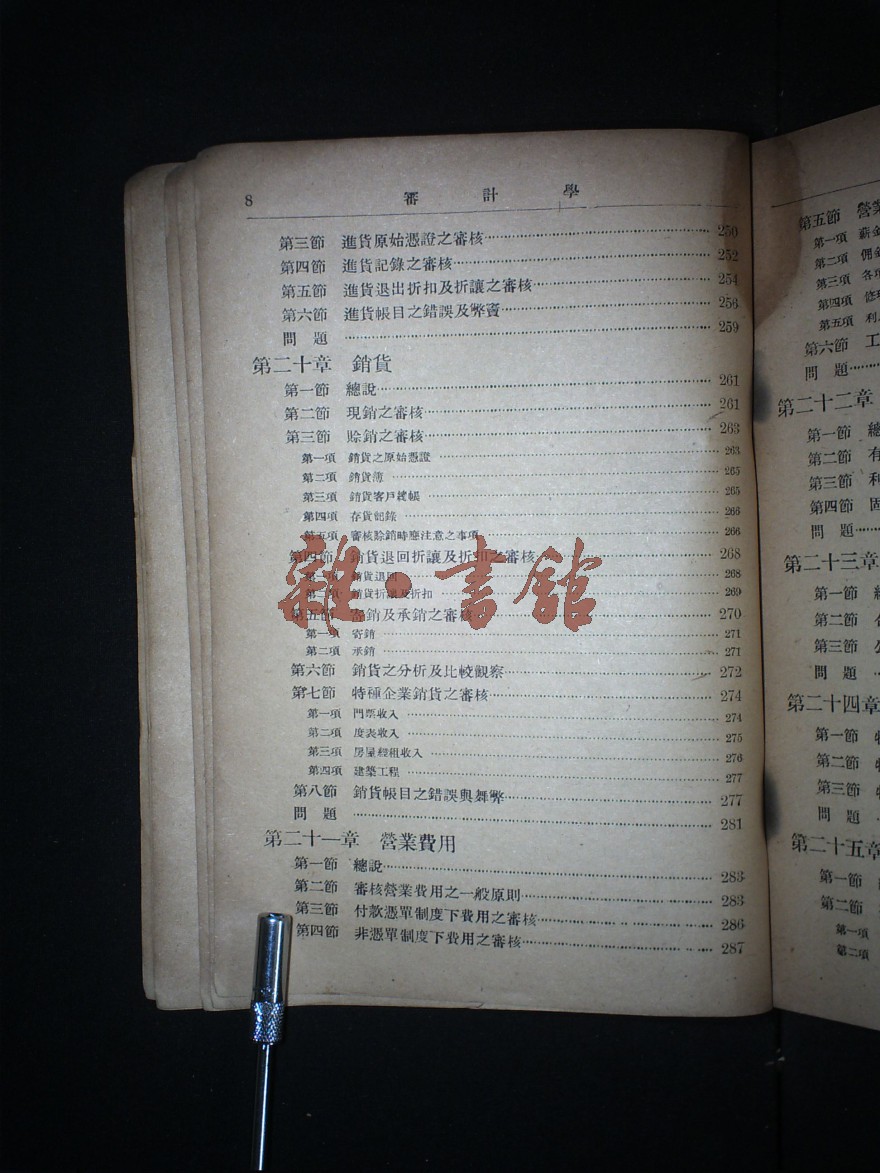 8 審計學
第三節 進貨原始憑證之審核 250
第四節 進貨記錄之審核 252
第五節 進貨退出折扣及折讓之審核 254
第六節 進貨帳目之錯誤及弊竇 256
問題 259
第二十章 銷貨
第一節 總說 261
第二節 現銷之審核 261
第三節 賒銷之審核 263
第一項 銷貨之原始憑證 263
第二項 銷貨簿 265
第三項 銷貨客戶總帳 265
第四項 存貨記錄 266
第五項 審核賒銷時應注意之事項 266
第四節 銷貨退回折讓及折扣之審核 268
第一項 銷貨退回 268
第二項 銷貨折讓及折扣 269
第五節 寄銷及承銷之審核 270
第一項 寄銷 271
第二項 承銷 271
第六節 銷貨之分析及比較觀察 272
第七節 特種企業銷貨之審核 274
第一項 門票收入 274
第二項 度表收入 275
第三項 房屋經租收入 276
第四項 建築工程 277
第八節 銷貨帳目之錯誤與舞弊 277
問題 281
第二十一章 營業費用
第一節 總說 283
第二節 審核營業費用之一般原則 283
第三節 付款憑單制度下費用之審核 286
第四節 非憑單制度下費用之審核 287
雜·書館
第五節 營業
第一項 薪金
第二項 佣金
第三項 各項
第四項 修
第五項 利
第六節 工
問題
第二十二章
第一節 總
第二節 有
第三節 利
第四節 固
問題
第二十三章
第一節
第二節
第三節 公
問題
第二十四章
第一節 特
第二節 特
第三節 特
問題
第二十五章
第一節
第二節
第一項
第二項